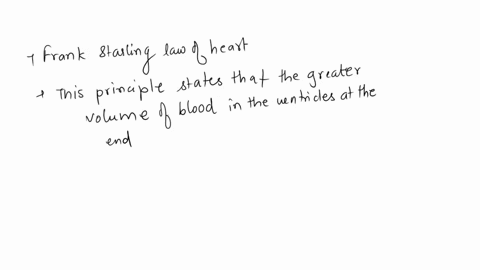 → Frank Starling law of heart
→ This principle states that the greater
volume of blood in the ventricles at the
end